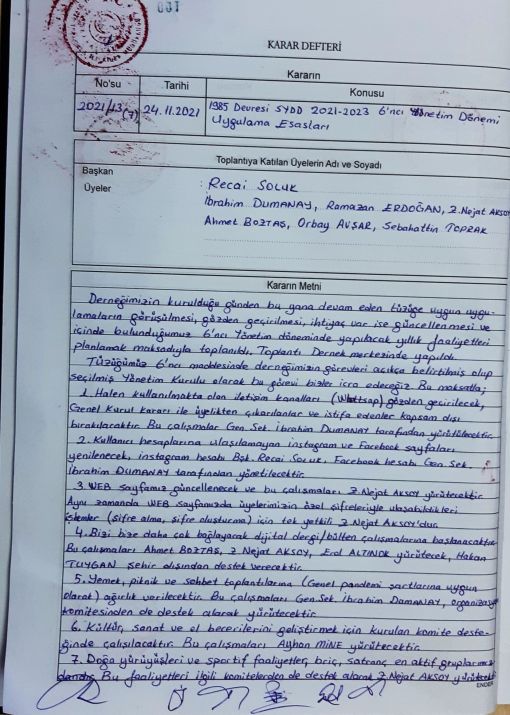 001
KARAR DEFTERİ
Kararın
No'su
Tarihi
Konusu
2021/13(7)
24.11.2021
1985 Devresi SYDD 2021-2023 6'ncı Yönetim Dönemi
Uygulama Esasları
Toplantıya Katılan Üyelerin Adı ve Soyadı
Başkan : Recai SOLUK
Üyeler İbrahim DUMANAY, Ramazan ERDOĞAN, Z.Nejat AKSOY
Ahmet BOZTAŞ, Orbay AVŞAR, Sebahattin TOPRAK
Kararın Metni
Derneğimizin kurulduğu günden bu yana devam eden tüzüğe uygun uygu-
lamaların görüşülmesi, gözden geçirilmesi, ihtiyaç var ise güncellenmesi ve
içinde bulunduğumuz 6'ncı Yönetim döneminde yapılacak yıllık faaliyetleri
planlamak maksadıyla toplanıldı. Toplantı Dernek merkezinde yapıldı.
Tüzüğümüz 6'ncı maddesinde derneğimizin görevleri açıkça belirtilmiş olup
seçilmiş Yönetim Kurulu olarak bu görevi bizler icra edeceğiz. Bu maksatla;
1. Halen kullanılmakta olan iletişim kanalları (Whattsap) gözden geçirilecek,
Genel Kurul kararı ile üyelikten çıkarılanlar ve istifa edenler kapsam dışı
bırakılacaktır. Bu çalışmalar Gen.Sek. İbrahim DUMANAY tarafından yürütülecektir.
2. Kullanıcı hesaplarına ulaşılamayan instagram ve Facebook sayfaları
yenilenecek, instagram hesabı Bşk. Recai SOLUK, Facebook hesabı Gen.Sek.
İbrahim DUMANAY tarafından yönetilecektir.
3. WEB sayfamız güncellenecek ve bu çalışmaları Z.Nejat AKSOY yürütecektir.
Aynı zamanda WEB sayfamızda üyelerimizin özel şifreleriyle ulaşabildikleri
işlemler (şifre alma, şifre oluşturma) için tek yetkili Z.Nejat AKSOY'dur.
4. Bizi bize daha çok bağlayarak dijital dergi/bülten çalışmalarına başlanacaktır.
Bu çalışmaları Ahmet BOZTAŞ, Z Nejat AKSOY, Erol ALTINOK yürütecek, Hakan
TUYGAN şehir dışından destek verecektir.
5. Yemek, piknik ve sohbet toplantılarına (Genel pandemi şartlarına uygun
olarak) ağırlık verilecektir. Bu çalışmaları Gen.Sek. İbrahim DUMANAY, organizasyon
komitesinden de destek alarak yürütecektir.
6. Kültür, sanat ve el becerilerini geliştirmek için kurulan komite deste-
ğinde çalışılacaktır. Bu çalışmaları Ayhan MİNE yürütecektir.
7. Doğa yürüyüşleri ve sportif faaliyetler, briç, satranç en aktif gruplarımız
dandır. Bu faaliyetleri ilgili komitelerden de destek alarak Z.Nejat AKSOY yürütecektir
ENDER